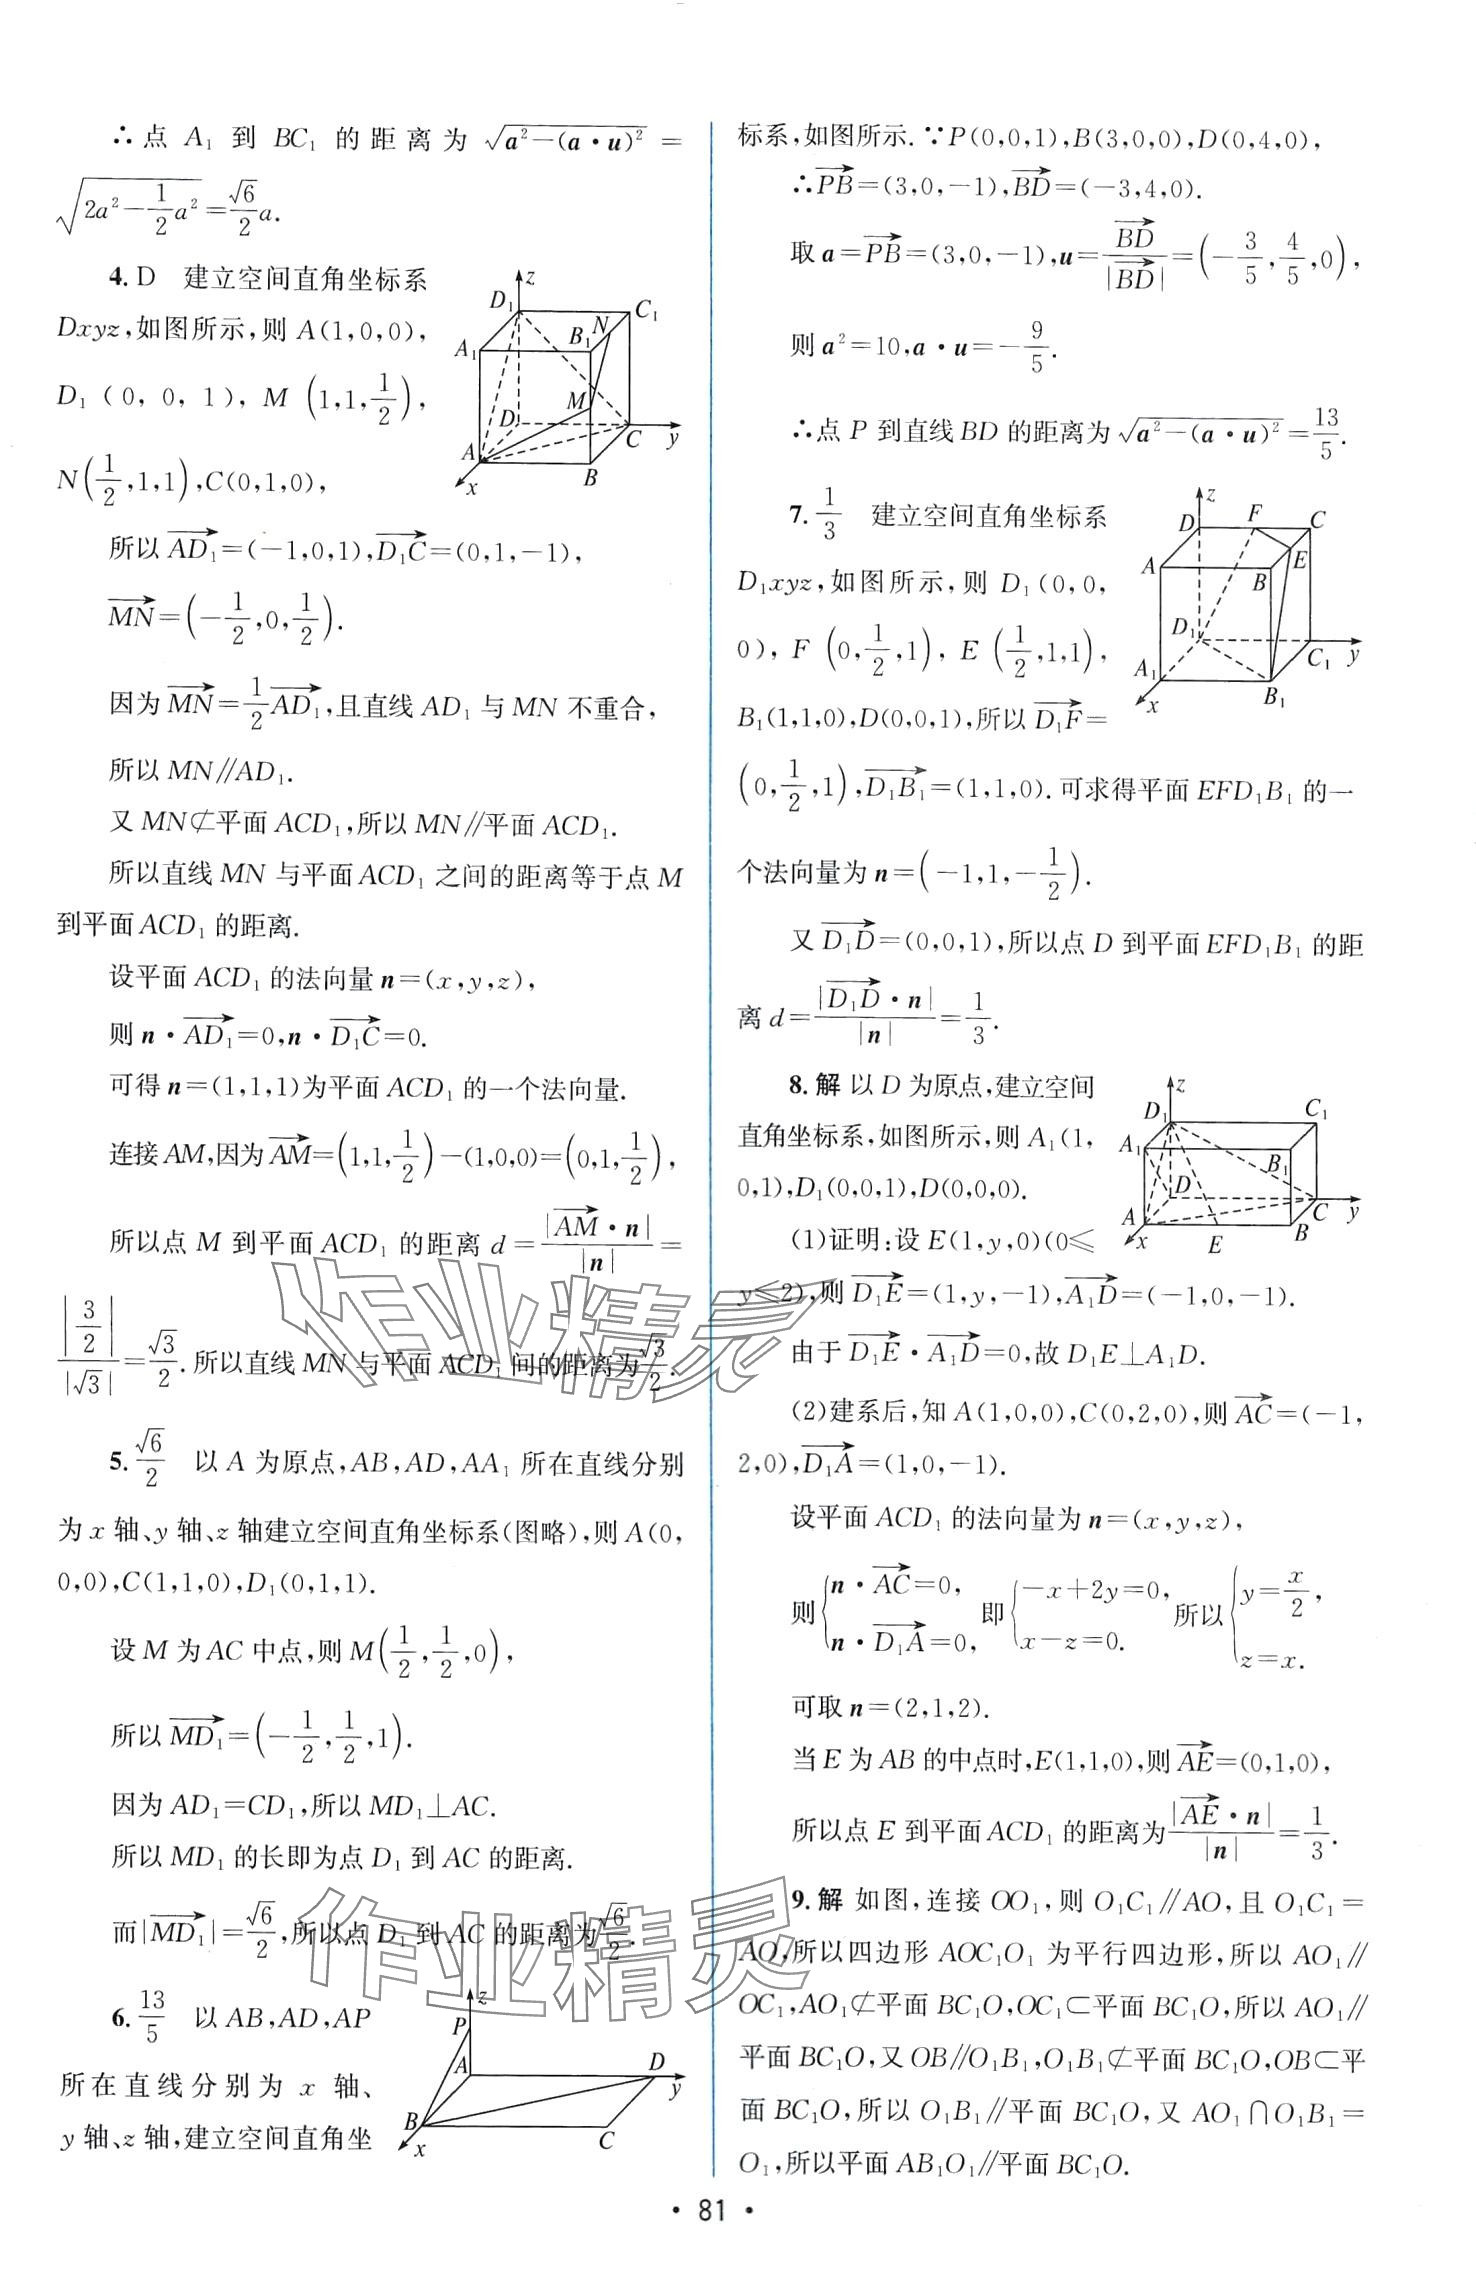 ∴点 A₁ 到 BC₁ 的距离为 √(a²−(a·u)²) =
√(2a²−1/2 a²) = √6/2 a.
4. D 建立空间直角坐标系
Dxyz,如图所示,则 A(1,0,0),
D₁(0,0,1), M(1,1,1/2),
N(1/2,1,1),C(0,1,0),
所以 AD₁→=(−1,0,1),D₁C→=(0,1,−1),
MN→=(−1/2,0,1/2).
因为 MN→=1/2 AD₁→,且直线 AD₁ 与 MN 不重合,
所以 MN∥AD₁.
又 MN⊄平面 ACD₁,所以 MN∥平面 ACD₁.
所以直线 MN 与平面 ACD₁ 之间的距离等于点 M
到平面 ACD₁ 的距离.
设平面 ACD₁ 的法向量 n=(x,y,z),
则 n·AD₁→=0,n·D₁C→=0.
可得 n=(1,1,1)为平面 ACD₁ 的一个法向量.
连接 AM,因为 AM→=(1,1,1/2)−(1,0,0)=(0,1,1/2),
所以点 M 到平面 ACD₁ 的距离 d=|AM→·n|/|n|=
|3/2|/|√3|=√3/2.所以直线 MN 与平面 ACD₁ 间的距离为√3/2.
5. √6/2 以 A 为原点,AB,AD,AA₁ 所在直线分别
为 x 轴、y 轴、z 轴建立空间直角坐标系(图略),则 A(0,
0,0),C(1,1,0),D₁(0,1,1).
设 M 为 AC 中点,则 M(1/2,1/2,0),
所以 MD₁→=(−1/2,1/2,1).
因为 AD₁=CD₁,所以 MD₁⊥AC.
所以 MD₁ 的长即为点 D₁ 到 AC 的距离.
而|MD₁→|=√6/2,所以点 D₁ 到 AC 的距离为√6/2.
6. 13/5 以 AB,AD,AP
所在直线分别为 x 轴、
y 轴、z 轴,建立空间直角坐
z
D₁
C₁
N
B₁
A₁
M
D
C
y
A
B
x
z
P
A
D
y
B
x
C
标系,如图所示.∵P(0,0,1),B(3,0,0),D(0,4,0),
∴PB→=(3,0,−1),BD→=(−3,4,0).
取 a=PB→=(3,0,−1),u=BD→/|BD→|=(−3/5,4/5,0),
则 a²=10,a·u=−9/5.
∴点 P 到直线 BD 的距离为 √(a²−(a·u)²)=13/5.
7. 1/3 建立空间直角坐标系
D₁xyz,如图所示,则 D₁(0,0,
0), F(0,1/2,1), E(1/2,1,1),
B₁(1,1,0),D(0,0,1),所以 D₁F→=
(0,1/2,1),D₁B₁→=(1,1,0).可求得平面 EFD₁B₁ 的一
个法向量为 n=(−1,1,−1/2).
又 D₁D→=(0,0,1),所以点 D 到平面 EFD₁B₁ 的距
离 d=|D₁D→·n|/|n|=1/3.
8. 解 以 D 为原点,建立空间
直角坐标系,如图所示,则 A₁(1,
0,1),D₁(0,0,1),D(0,0,0).
(1)证明:设 E(1,y,0)(0≤
y≤2),则 D₁E→=(1,y,−1),A₁D→=(−1,0,−1).
由于 D₁E→·A₁D→=0,故 D₁E⊥A₁D.
(2)建系后,知 A(1,0,0),C(0,2,0),则 AC→=(−1,
2,0),D₁A→=(1,0,−1).
设平面 ACD₁ 的法向量为 n=(x,y,z),
则{n·AC→=0, n·D₁A→=0, 即{−x+2y=0, x−z=0. 所以{y=x/2, z=x.
可取 n=(2,1,2).
当 E 为 AB 的中点时,E(1,1,0),则 AE→=(0,1,0),
所以点 E 到平面 ACD₁ 的距离为|AE→·n|/|n|=1/3.
9. 解 如图,连接 OO₁,则 O₁C₁∥AO,且 O₁C₁=
AO,所以四边形 AOC₁O₁ 为平行四边形,所以 AO₁∥
OC₁,AO₁⊄平面 BC₁O,OC₁⊂平面 BC₁O,所以 AO₁∥
平面 BC₁O,又 OB∥O₁B₁,O₁B₁⊄平面 BC₁O,OB⊂平
面 BC₁O,所以 O₁B₁∥平面 BC₁O,又 AO₁∩O₁B₁=
O₁,所以平面 AB₁O₁∥平面 BC₁O.
z
D
F
C
A
B
E
D₁
C₁
y
A₁
B₁
x
z
D₁
C₁
A₁
B₁
D
C
y
A
E
B
x
作业精灵
作业精灵
· 81 ·